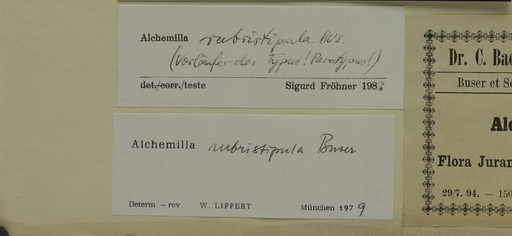 Alchemilla rubristipula Bus.
(Vorläufer des Typus! Paratypus!)
det./corr./teste Sigurd Fröhner 198
Alchemilla rubristipula Buser
Determ – rev W. LIPPERT München 1979
Dr. C. Bae
Buser et Se
Alc
Flora Juran
29/7. 94. — 150